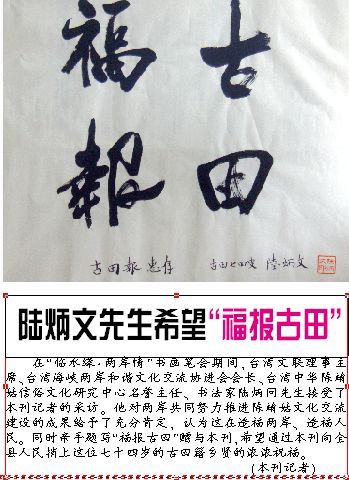 古田
福報
古田報 惠存
古田七四叟 陸炳文
陆炳文先生希望“福报古田”
在“临水缘·两岸情”书画笔会期间,台湾文联理事主
席、台湾海峡两岸和谐文化交流协进会会长、台湾中华陈靖
姑信俗文化研究中心名誉主任、书法家陆炳同先生接受了
本刊记者的采访。他对两岸共同努力推进陈靖姑文化交流
建设的成果给予了充分肯定,认为这在造福两岸、造福人
民。同时牵手题写“福报古田”赠与本刊,希望通过本刊向全
县人民捎上这位七十四岁的古田籍乡贤的浓浓祝福。
(本刊记者)